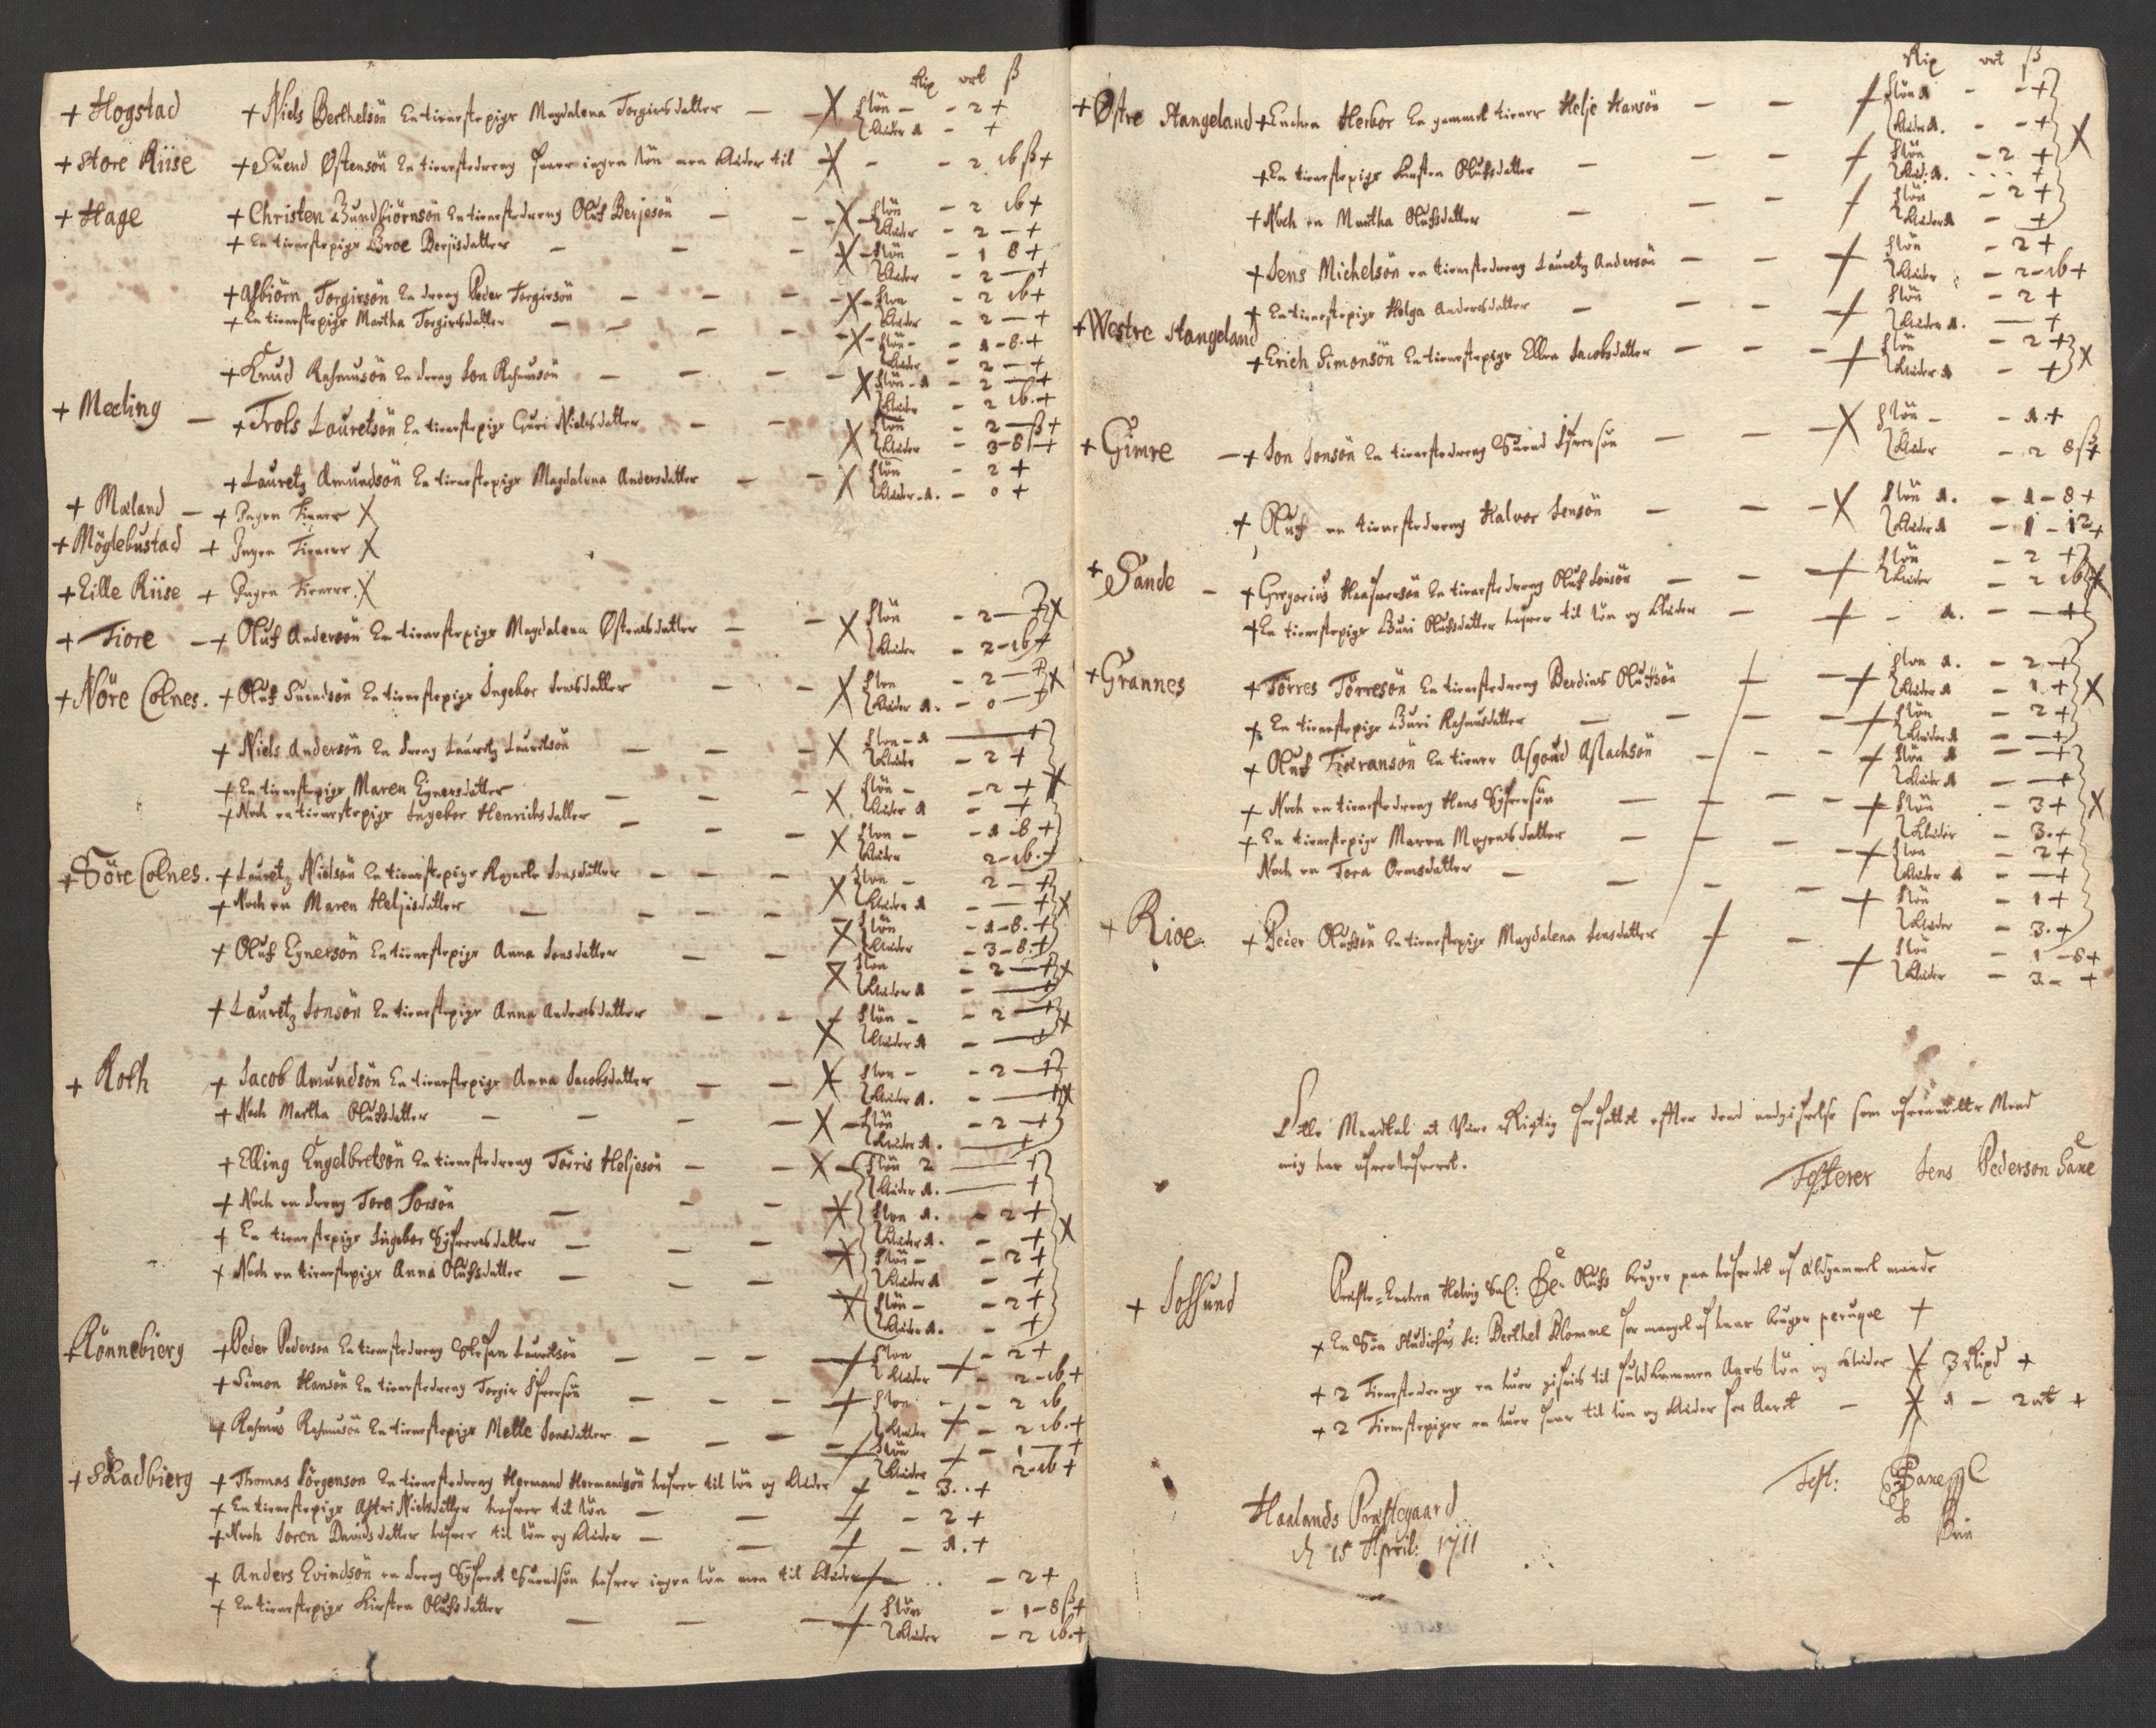 Rix ort ß
+ Hogstad + Niels Berthelsön En tieneste pige Magdalena Torgiersdatter — X Lön - - 2 +
Klæder 1 - +
+ Store Riise + Suend Østensön En tienestedreng faaer ingen lön men klæder til X - - 2 16 ß +
+ Hage + Christen Gundbiörnsön En tienestedreng Oluf Berjesön — - X Lön - 2 16 +
Klæder - 2 - +
+ En tienestepige Broe Berjisdatter — — - X Lön - 1 8 +
Klæder - 2 — +
+ Asbiörn Torgirsön En dreng Peder Torgirsön — — — X Lön - 2 16 +
Klæder - 2 — +
+ En tienestepige Martha Torgirsdatter — — — X Lön - 1 - 8. +
Klæder - 2 — +
+ Knud Rasmusön En dreng Jon Rasmusön — — — X Lön - 1 - 2 — +
Klæder - 2 16. +
+ Meeling — + Trols Lauretsön En tienestepige Guri Nielsdatter — — X Lön - 2 — ß +
Klæder - 3 - 8 ß +
+ Lauretz Amundsön En tienestepige Magdalena Andersdatter — — X Lön - 2 +
Klæder - 1. - 0 +
+ Mæland — + Ingen Tienere X
+ Möglebustad + Ingen Tienere X
+ Lille Riise + Ingen Tienere. X
+ Tiore — + Oluf Andersön En tienestepige Magdalena Østensdatter — — X Lön - 2 — + X
Klæder - 2 - 16 +
+ Nöre Colnes. + Oluf Suendsön En tienestepige Ingebor Jensdatter — — X Lön - 2 — + X
Klæder 1. - 0 — +
+ Niels Andersön En dreng Lauretz Lauritsön — — — X Lön - 1 — +
Klæder - 2 +
+ En tienestepige Maren Eynersdatter — — — X Lön - - 2 + X
Klæder 1 - +
+ Noch en tienestepige Ingebor Henrichsdatter — — — X Lön - - 1 - 8 +
Klæder 2 - 16. +
+ Söre Colnes. + Lauretz Nielsön En tienestepige Jonsdatter — — — X Lön - 2 — +
Klæder 1 - — + X
+ Noch en Maren Heljisdatter — — — — X Lön - 1 - 8. +
Klæder - 3 - 8. +
+ Oluf Eynersön En tienestepige Anna Jensdatter — — X Lön - 2 — + X
Klæder 1 - — +
+ Lauretz Jonsön En tienestepige Anna Andersdatter — — X Lön - - 2 — + X
Klæder 1 - — +
+ Roth + Jacob Amundsön En tienestepige Anna Jacobsdatter — — X Lön - - 2 — +
Klæder 1. - — + X
+ Noch Martha Olufsdatter — — — — X Lön - 2 — +
Klæder 1. — +
+ Elling Engelbretsön En tienestedreng Törris Heljesön — — X Lön 2 — +
Klæder 1. — +
+ Noch en dreng Tore Torsön — — — X Lön 1. - 2 +
Klæder 1. - + X
+ En tienestepige Ingebor Syfversdatter — — — X Lön - - 2 +
Klæder 1 - +
+ Noch en tienestepige Anna Olufsdatter — — — X Lön - - 2 +
Klæder 1. - +
+ Rönnebierg + Peder Pederson En tienestedreng Stefan Lauritsön — — — + Lön - 2 +
Klæder + - 2 - 16 +
+ Simon Hansön En tienestedreng Torgir Ifversön — — — + Lön - 2 16
Klæder + - 2 16. +
+ Rasmus Rasmusön En tienestepige Mette Jonsdatter — — — + Lön - 1 — +
Klæder + 2 - 16 +
+ Skadbierg + Thomas Jörgenson En tienestedreng Hermand Hermandsön hafver til lön og klæder + - 3.. +
+ En tienestepige Astri Nielsdatter hafver til lön — — + - 2 +
+ Noch Soren Davidsdatter hafver til lön og klæder — — + - 1. +
+ Anders Evindsön en dreng Syfvert Suendsön hafver ingen lön men til klæder + .. - 2 +
+ En tienestepige Kirsten Olufsdatter — — — + Lön - 1 - 8 ß +
Klæder - 2 16. +
Rix ort ß
+ Østre Hangeland + Enchen Herbor En gammel tiener Helje Hansön — — + Lön 1 - - +
Klæder 1. - - + X
+ En tienestepige Kirsten Olufsdatter — — — + Lön - 2 +
Klæd: 1. ... +
+ Noch en Martha Olufsdatter — — — + Lön - 2 +
Klæder 1 - +
+ Jens Michelsön en tienestedreng Lauretz Andersön — — + Lön - 2 +
Klæder - 2 - 16 +
+ En tienestepige Helga Andersdatter — — — + Lön - 2 +
Klæder 1. — +
+ Westre Hangeland + Erich Simonsön En tienestepige Ellen Jacobsdatter — — — + Lön - 2 + X
Klæder 1 - +
+ Gimre — + Jon Jonsön En tienestedreng Suend Ifversön — — — X Lön - - 1. +
Klæder - 2 8 ß +
+ Oluf en tienestedreng Halvor Jensön — — — X Lön 1. - 1 - 8 +
Klæder 1 - 1 - 12 +
+ Sande — + Gregorius Haafversön En tienestedreng Oluf Jonsön — — + Lön - 2 +
Klæder - 2 16 X
+ En tienestepige Guri Olufsdatter hafver til lön og klæder — + - 1. - — +
+ Grannes + Törres Törresön En tienestedreng Berdines Olufsön + — + Lön 1. - 2 +
Klæder 1 - 1. + X
+ En tienestepige Guri Rasmusdatter — — — + Lön - 2 +
Klæder 1 - — +
+ Oluf Tioranson En tiener Asgoud Aslachsön — — — + Lön 1 — +
Klæder 1 — +
+ Noch en tienestedreng Hans Syfversön — — — + Lön - 3 + X
Klæder - 3. +
+ En tienestepige Maren Mogensdatter — — — + Lön - 2 +
Klæder 1 - — +
Noch en Tora Ormsdatter — — — + Lön - 1 +
Klæder - 3. +
+ Rioe. + Peder Olufsön En tienestepige Magdalena Jensdatter + — + Lön - 1 - 8 +
Klæder - 3. - +
Dette Mandtal at være Rigtig forfattet efter dend angifvelse som ofvenmelte Mend
mig har ofverlefveret.
Testerer Jens Pederson Sane
+ Sossund Præste-Enchen Helvig Sal: Hr. Olufs bruger paa hofvedet af Aldgammel maade
+ En Sön Studiosus hr: Berthel Blomme for mangel af haar bruger peruqve +
+ 2 Tienestedrenge en huer gifvis til fuldkommen Aars lön og klæder X 3 Rixd +
+ 2 Tienestepiger en huer faar til lön og klæder for Aaret — X 1 - 2 ort +
Test: Sane
Haalands Præstegaard
d 15 April: 1711